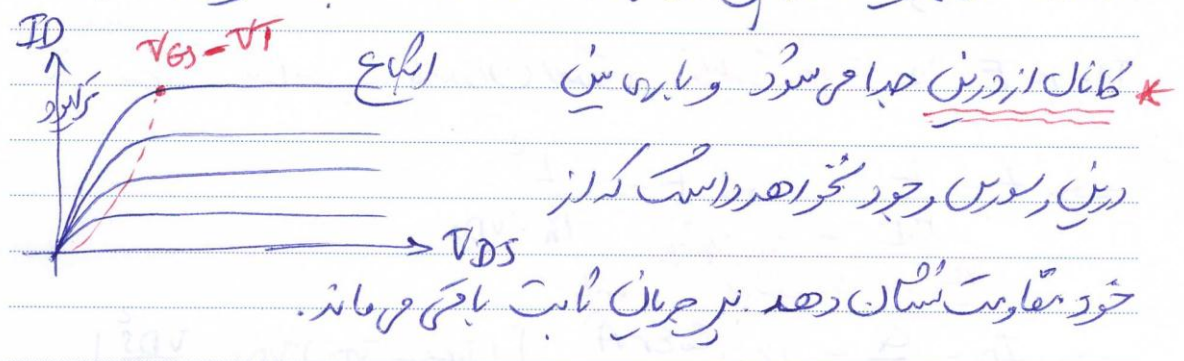 ID
VGS - VT
تریود
اشباع
VDS
* کانال از درین جدا می شود و باری بین
درین و سورس وجود نخواهد داشت که از
خود مقاومت نشان دهد. پس جریان ثابت باقی می ماند.